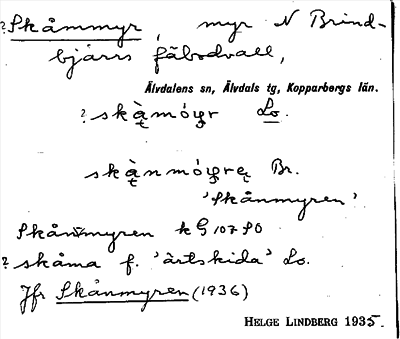 ?Skåmmyr, myr N Brind-
bjärs fäbodvall,
Älvdalens sn, Älvdals tg, Kopparbergs län.
? skà̰mó y̨r Lo.
skà̰nmó y̨rę Br.
'Skånmyren'
Skånmyren k G 107 90
? skåma f. 'ärtskida' Lo.
Jfr Skånmyren (1936)
HELGE LINDBERG 1935.